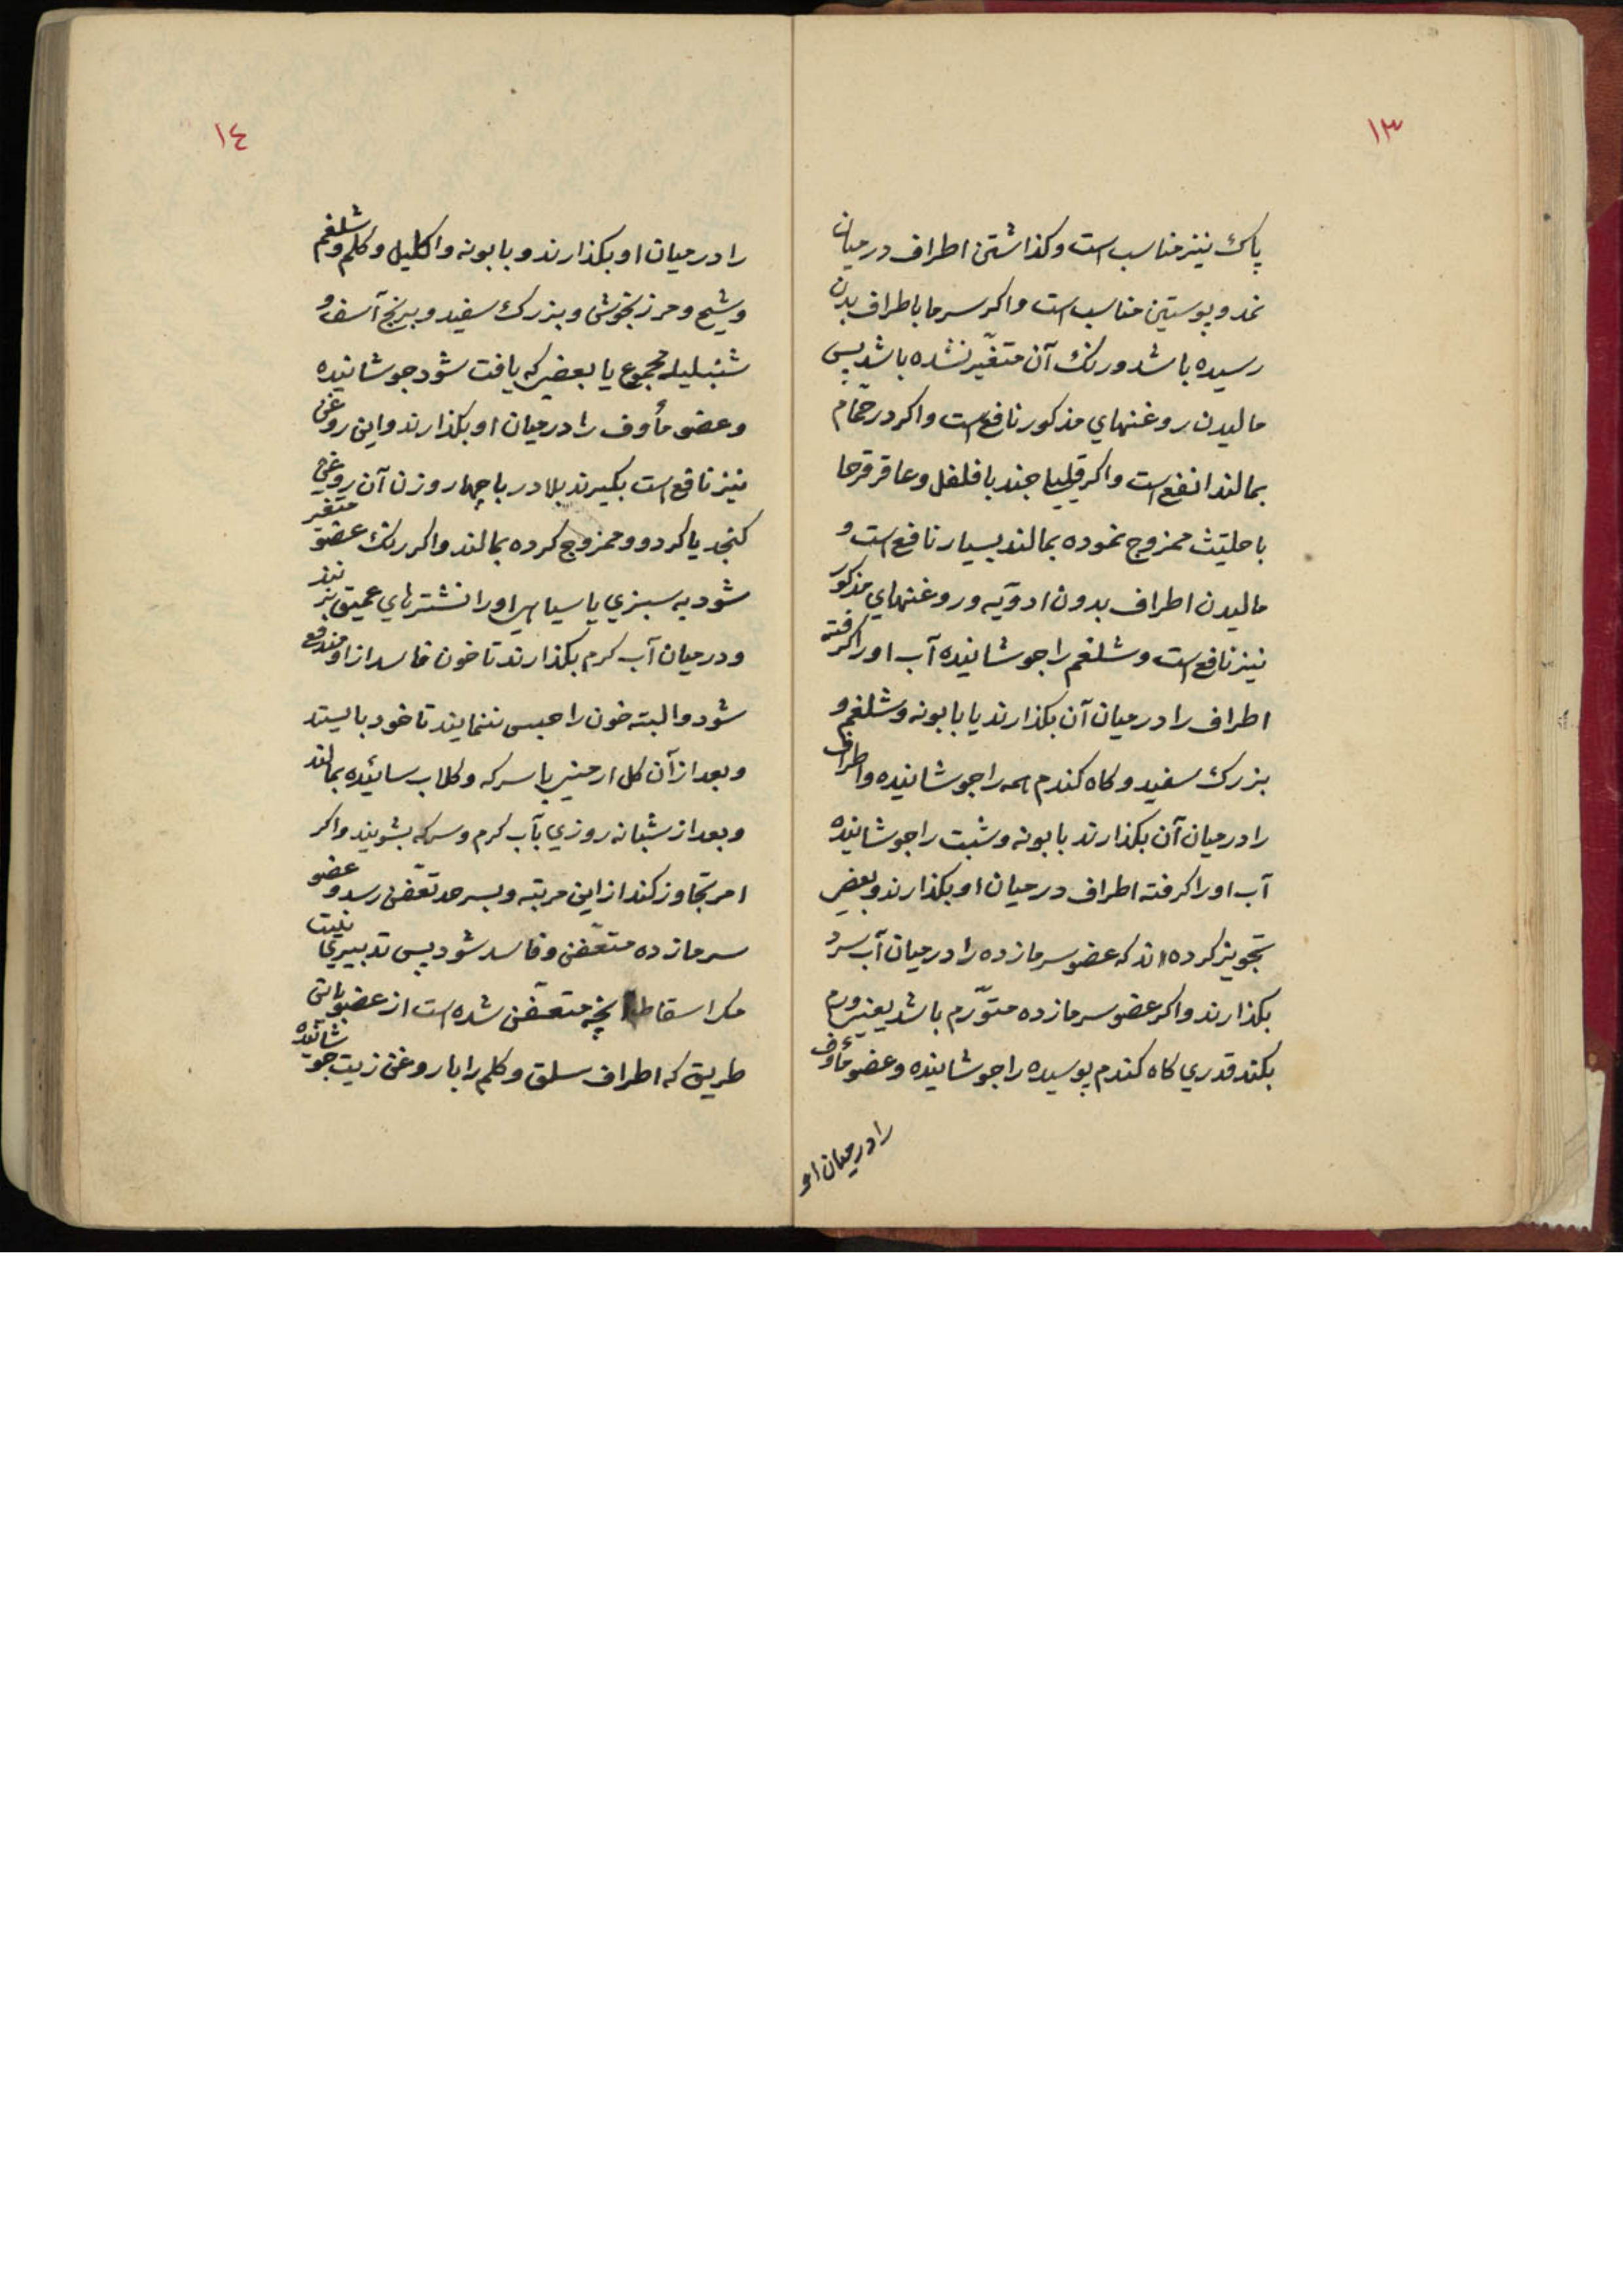 ١٣
پاك نيز مناسب است وكذاشتن اطراف درميان
نمد وپوستين مناسب است واكر سرما باطراف بدن
رسيده باشد ورنك آن متغيّر نشده باشد پس
ماليدن روغنهاي مذكور نافع است واكر در حمّام
بمالند انفع است واكر قليلي جند با فلفل وعاقرقرحا
با حلتيث ممزوج نموده بمالند بسيار نافع است و
ماليدن اطراف بدون ادويه وروغنهاي مذكور
نيز نافع است وشلغم را جوشانيده آب او را كرفته
اطراف را درميان آن بكذارند يا بابونه وشلغم و
بزرك سفيد وكاه كندم همه را جوشانيده واطراف
را درميان آن بكذارند بابونه وشبت را جوشانيده
آب او را كرفته اطراف درميان او بكذارند وبعضي
تجويز كرده اند كه عضو سرمازده را درميان آب سرد
بكذارند واكر عضو سرمازده متوّرم باشد يعني ورم
بكند قدري كاه كندم پوسيده را جوشانيده وعضو مأوف
را درميان او
١٤
را درميان او بكذارند وبابونه واكليل وكلم وشلغم
وشيح ومرزنجوش وبزرك سفيد وبرنج آسف و
شنبليله مجموع يا بعضي كه يافت شود جوشانيده
وعضو مأوف را درميان او بكذارند واين روغن
نيز نافع است بكيرند بلادر با چهار وزن آن روغن
كنجد يا كردو وممزوج كرده بمالند واكر رنك عضو متغير
شود به سبزي يا سياهي او را نشترهاي عميق بزنند
ودرميان آب كرم بكذارند تا خون فاسد از او مندفع
شود والبته خون را حبس ننمايند تا خود بايستد
وبعد از آن كل ارمني با سركه وكلاب سائيده بمالند
وبعد از شبانه روزي بآب كرم وسركه بشويند واكر
امر تجاوز كند از اين مرتبه وبسرحد تعّفن رسد وعضو
سرمازده متعّفن وفاسد شود پس تدبيري نيست
مكر اسقاط آنچه متعّفن شده است از عضو باين
طريق كه اطراف سلق وكلم را با روغن زيت جوشانيده